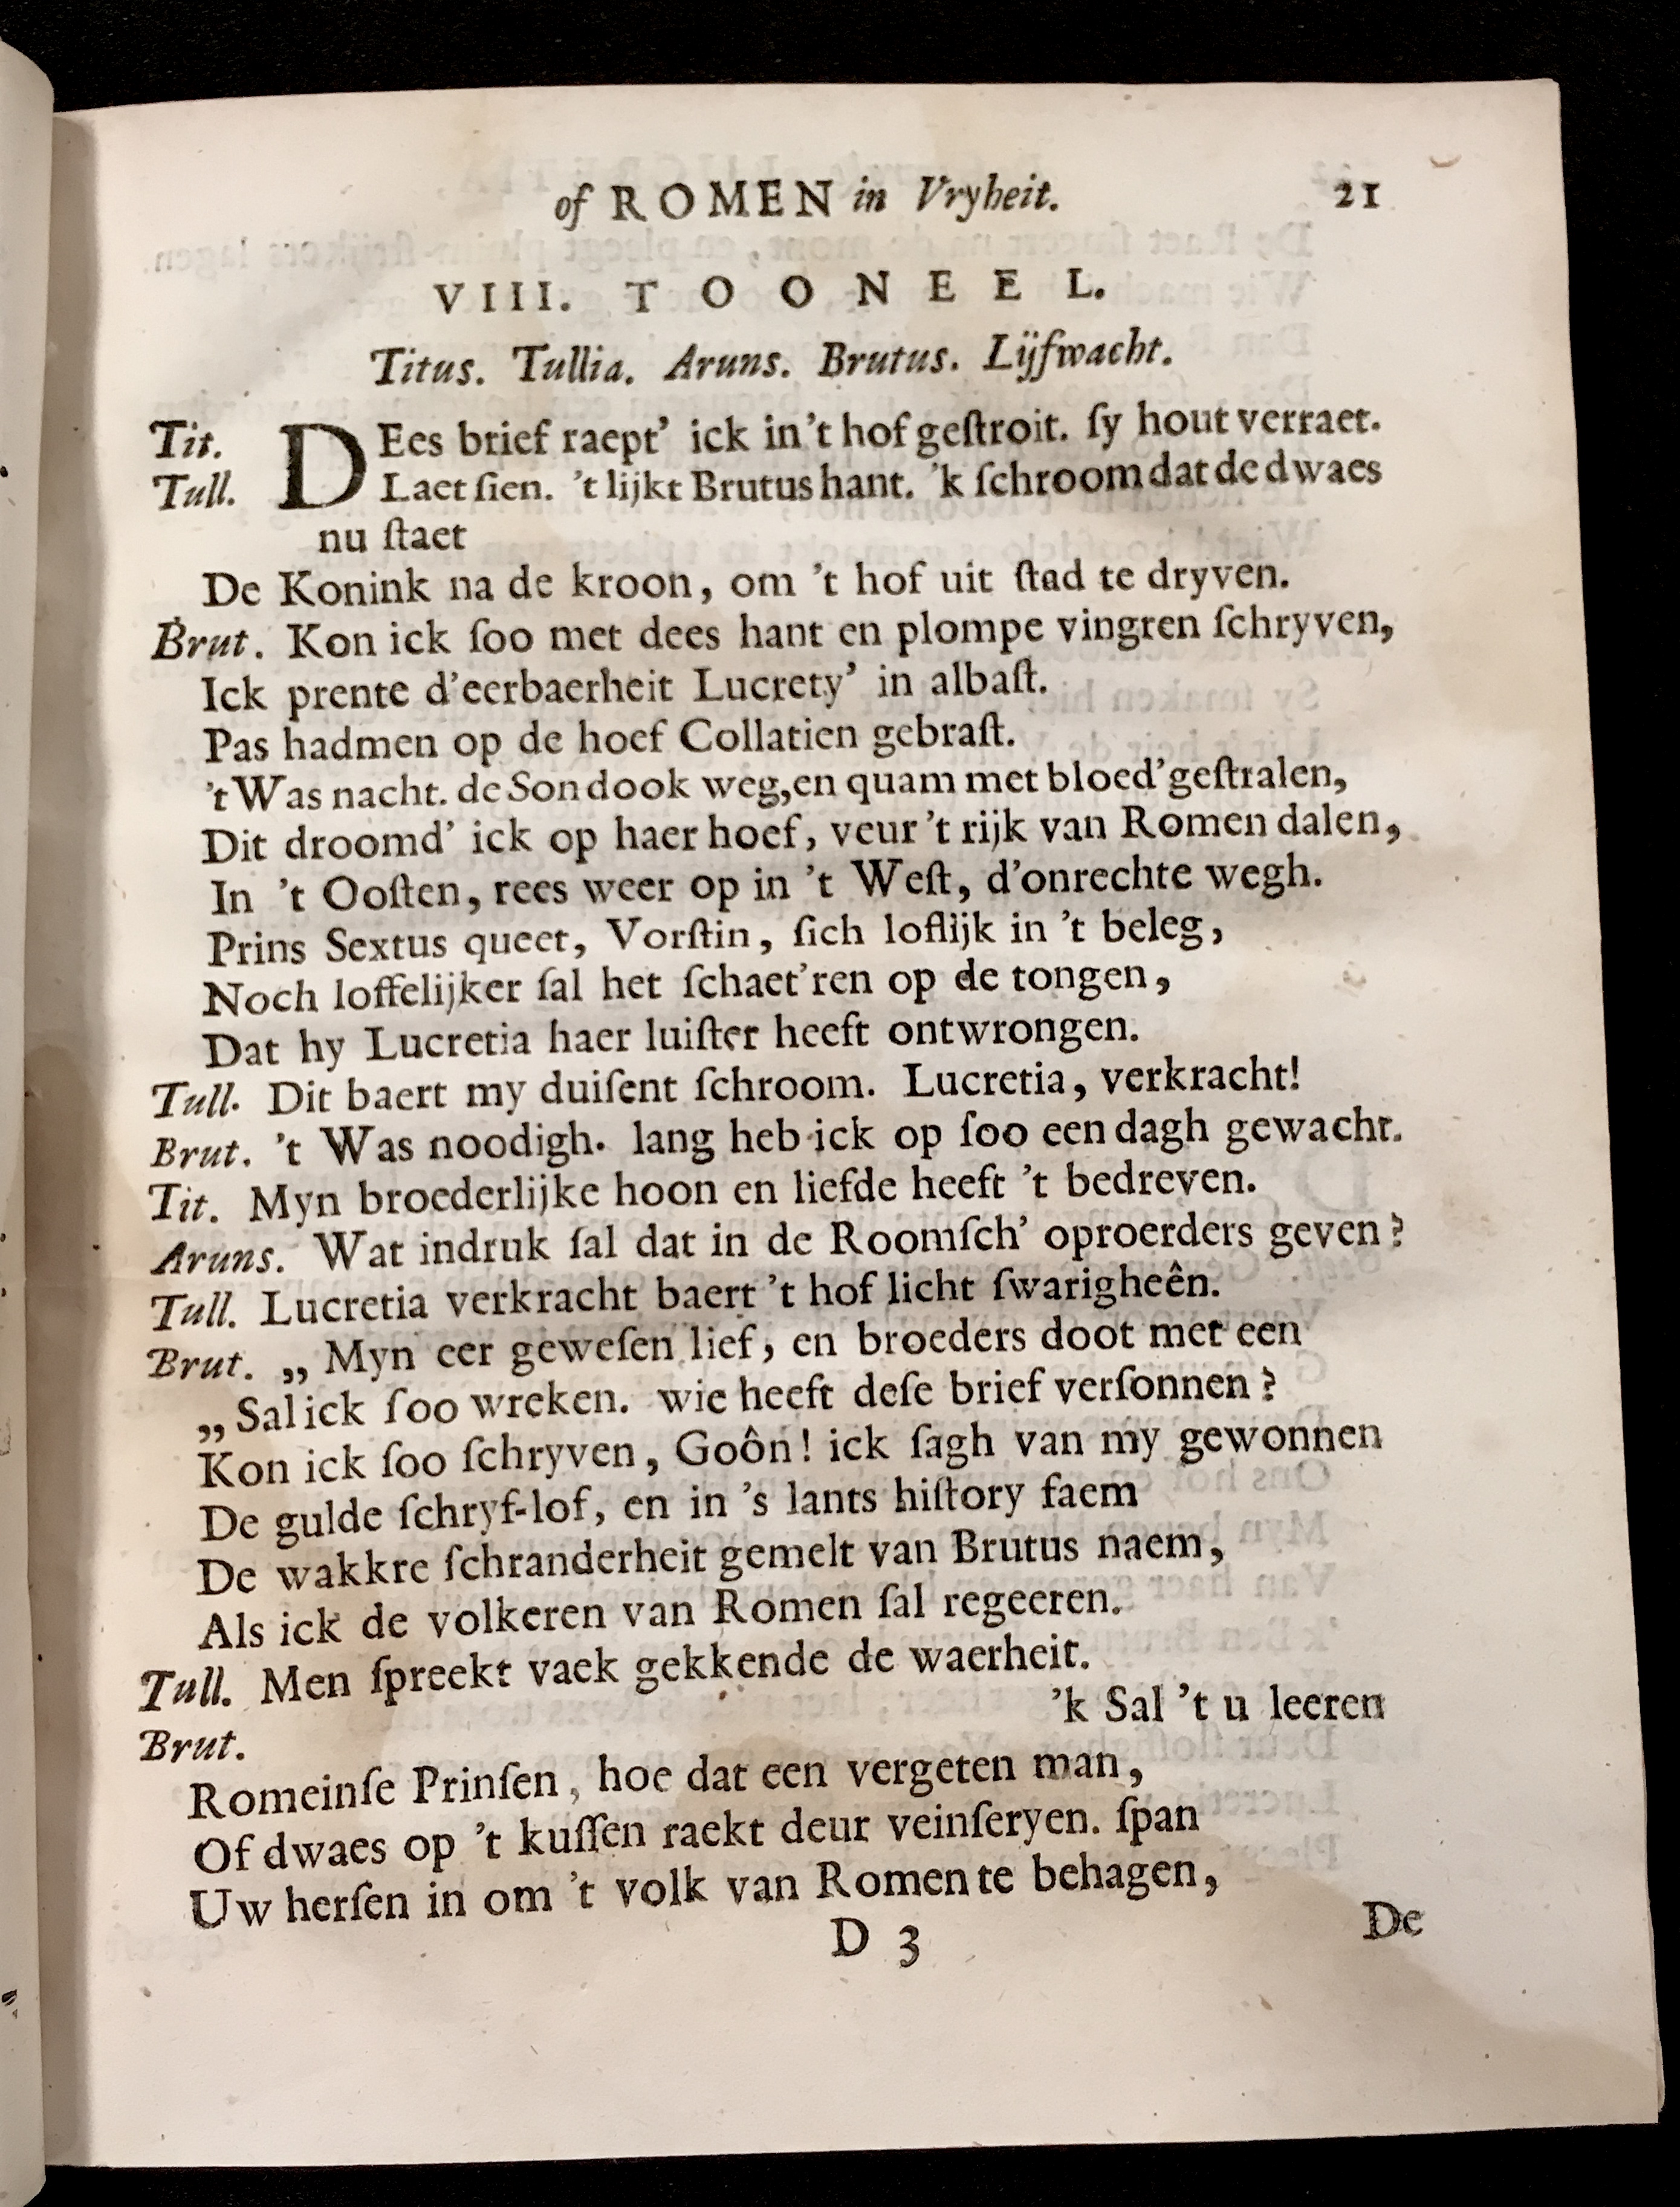 of ROMEN in Vryheit. 21
VIII. TOONEEL.
Titus. Tullia. Aruns. Brutus. Lijfwacht.
Tit. DEes brief raept' ick in 't hof geſtroit. ſy hout verraet.
Tull. Laet ſien. 't lijkt Brutus hant. 'k ſchroom dat de dwaes
nu ſtaet
De Konink na de kroon, om 't hof uit ſtad te dryven.
Brut. Kon ick ſoo met dees hant en plompe vingren ſchryven,
Ick prente d'eerbaerheit Lucrety' in albaſt.
Pas hadmen op de hoef Collatien gebraſt.
't Was nacht. de Son dook weg, en quam met bloed'ge ſtralen,
Dit droomd' ick op haer hoef, veur 't rijk van Romen dalen,
In 't Ooſten, rees weer op in 't Weſt, d'onrechte wegh.
Prins Sextus queet, Vorſtin, ſich loflijk in 't beleg,
Noch loffelijker ſal het ſchaet'ren op de tongen,
Dat hy Lucretia haer luiſter heeft ontwrongen.
Tull. Dit baert my duiſent ſchroom. Lucretia, verkracht!
Brut. 't Was noodigh. lang heb ick op ſoo een dagh gewacht.
Tit. Myn broederlijke hoon en liefde heeft 't bedreven.
Aruns. Wat indruk ſal dat in de Roomſch' oproerders geven?
Tull. Lucretia verkracht baert 't hof licht ſwarigheên.
Brut. „ Myn eer geweſen lief, en broeders doot met een
„ Sal ick ſoo wreken. wie heeft deſe brief verſonnen?
Kon ick ſoo ſchryven, Goôn! ick ſagh van my gewonnen
De gulde ſchryf-lof, en in 's lants hiſtory faem
De wakkre ſchranderheit gemelt van Brutus naem,
Als ick de volkeren van Romen ſal regeeren.
Tull. Men ſpreekt vaek gekkende de waerheit.
Brut. 'k Sal 't u leeren
Romeinſe Prinſen, hoe dat een vergeten man,
Of dwaes op 't kuſſen raekt deur veinſeryen. ſpan
Uw herſen in om 't volk van Romen te behagen,
D 3 De